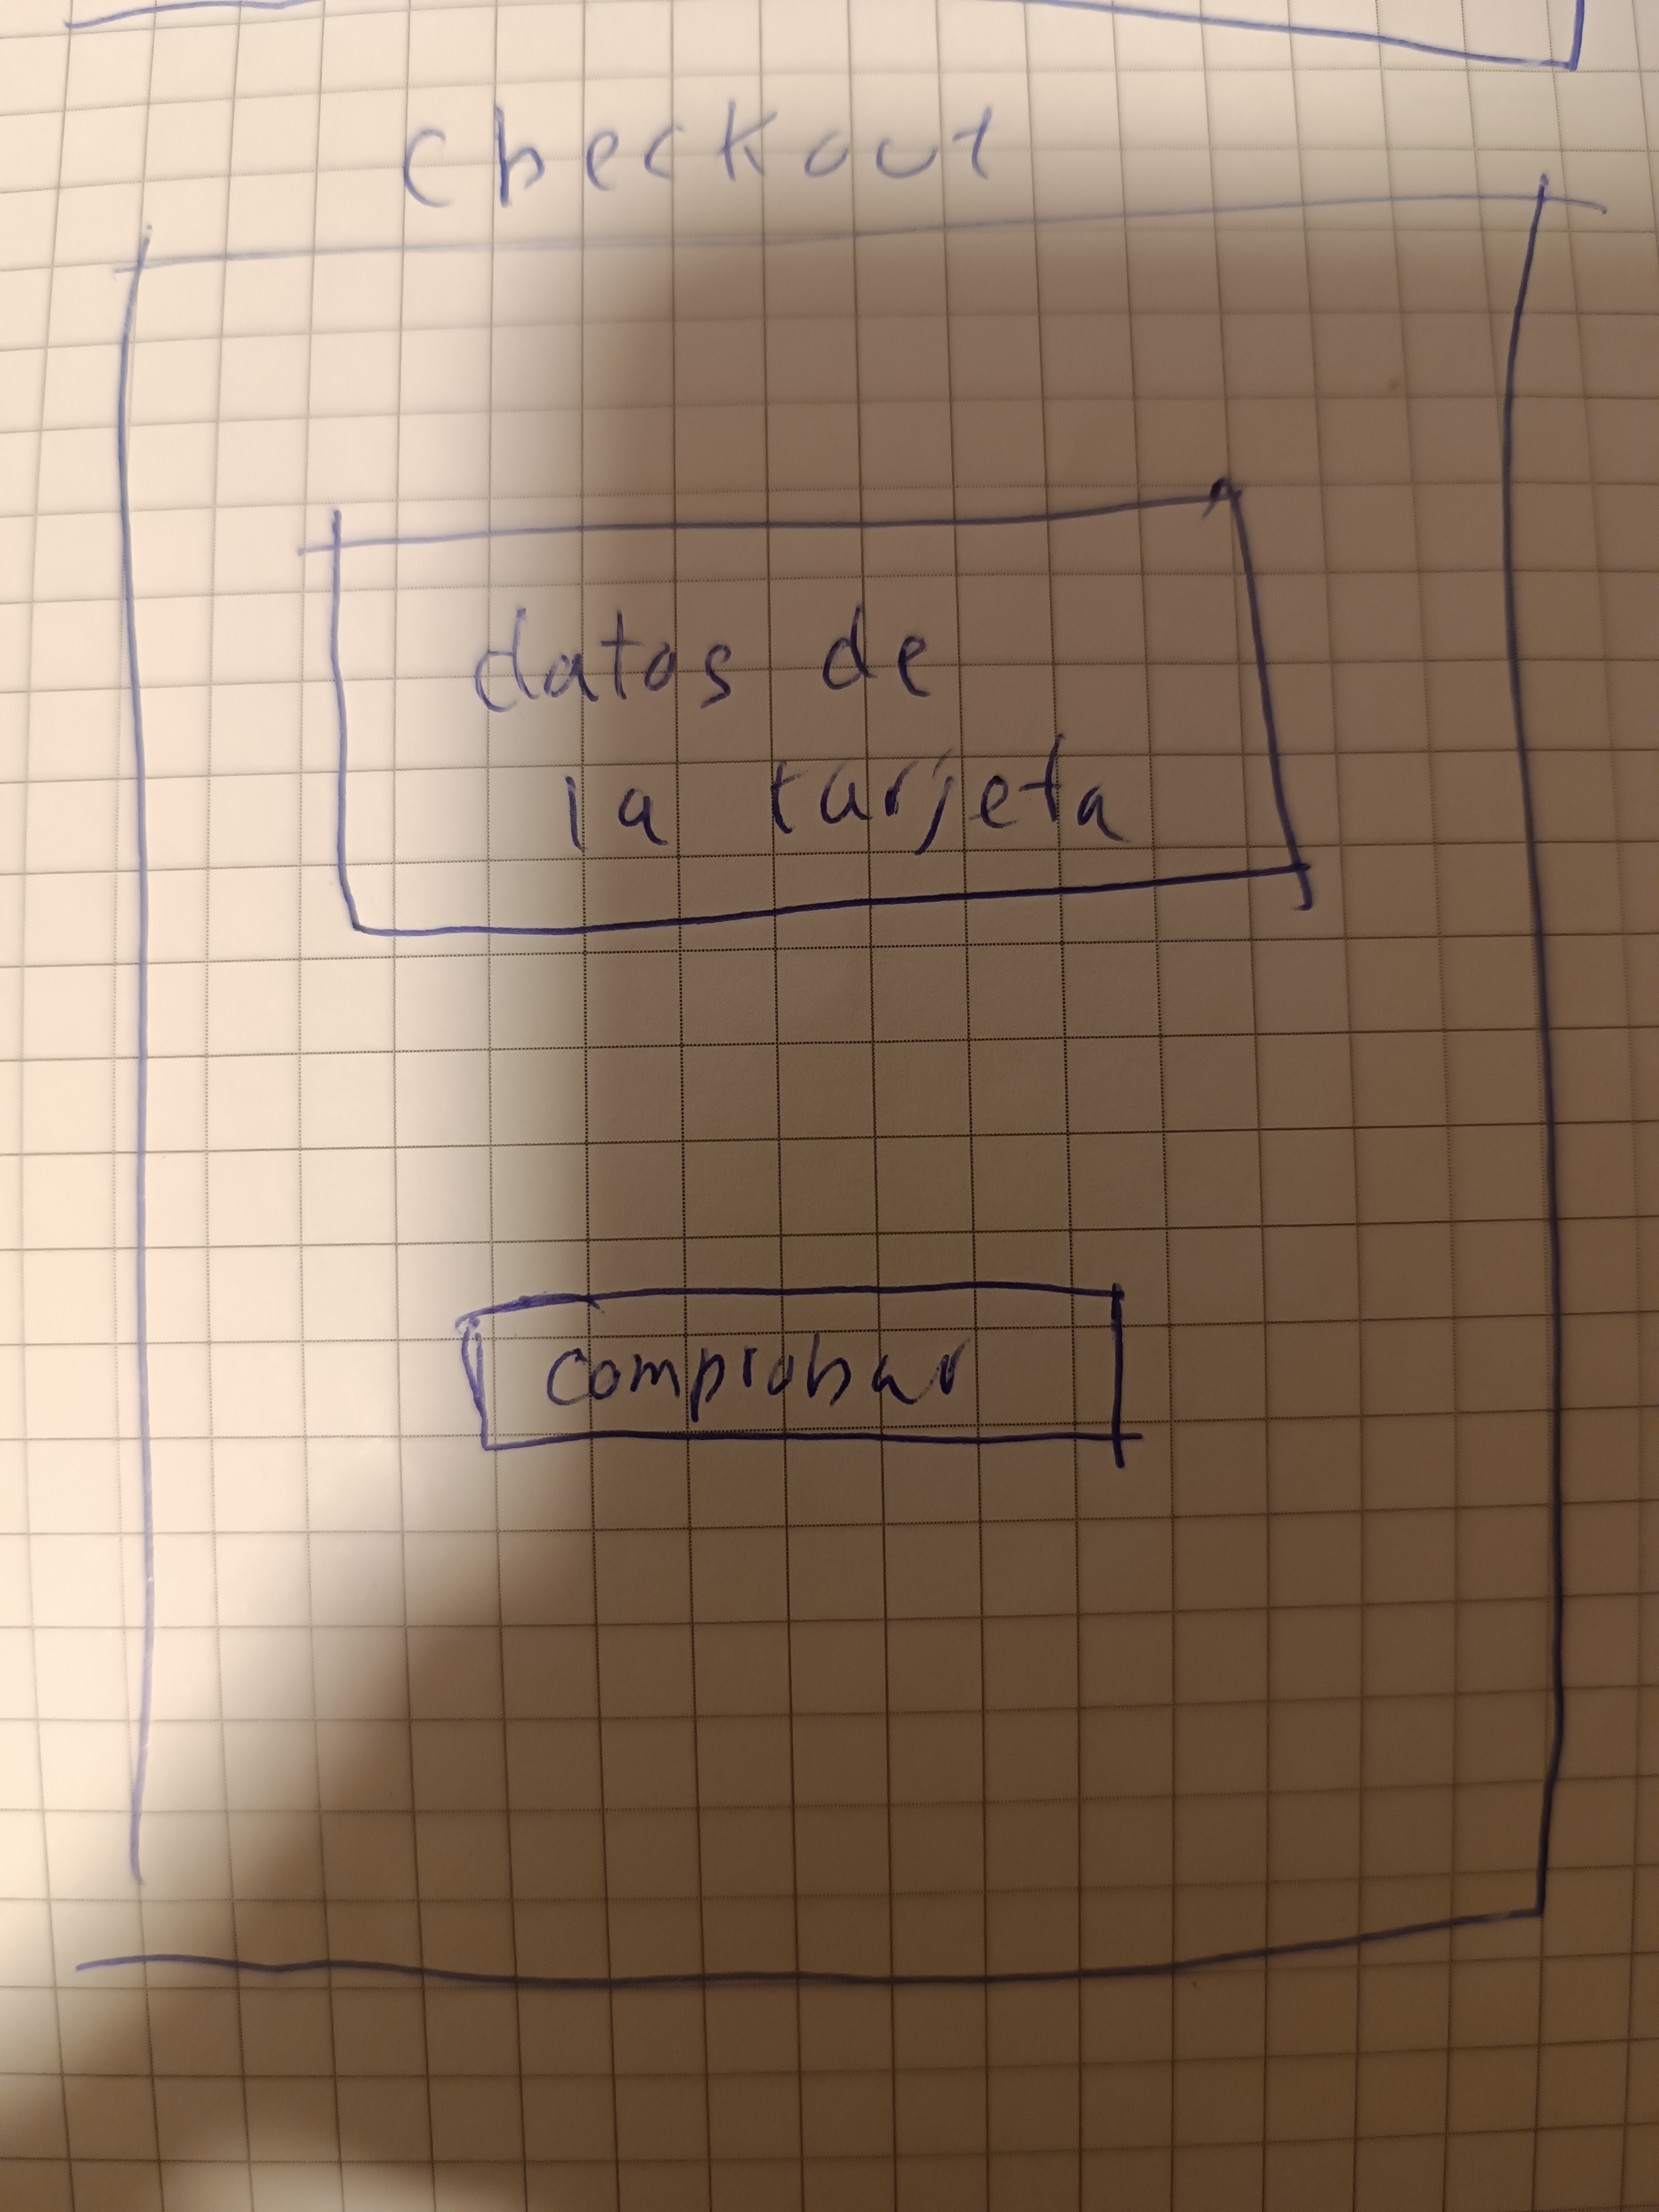 checkout
datos de
la tarjeta
comprobar